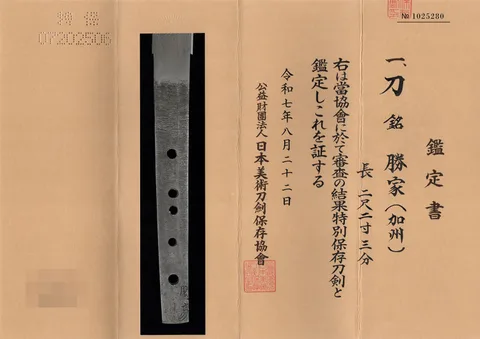 № 1025280
鑑定書
一、刀 銘 勝家(加州)
長 二尺二寸三分
右は當協會に於て審査の結果特別保存刀剣と
鑑定しこれを証する
令和七年八月二十二日
公益財團法人 日本美術刀劍保存協會
特保
07202506